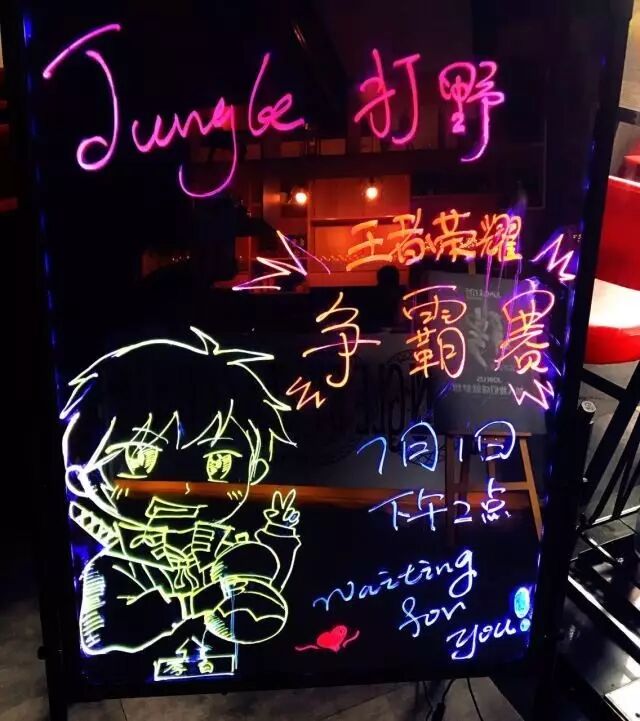 Jungle 打野
王者荣耀
争霸赛
7月1日
下午2点
Waiting
for
you!
李白
JOIN US